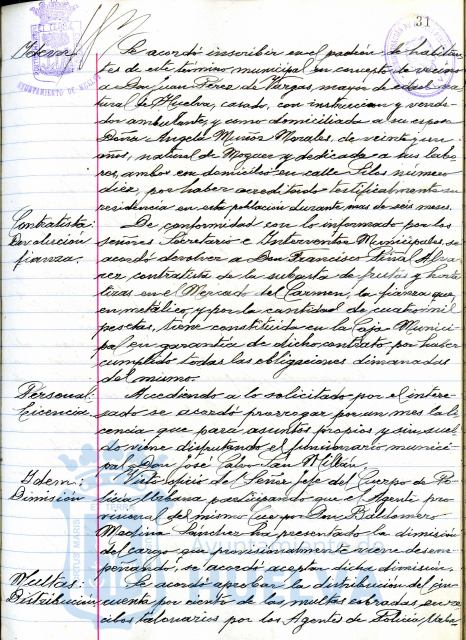 31
Idem:
Se acordó inscribir en el padrón de habitan-
tes de este termino municipal en concepto de vecinos
a Don Juan Perez de Vargas, mayor de edad, na-
tural de Huelva, casado, con instruccion y vende-
dor ambulante, y como domiciliado a su esposa
Doña Angela Muñoz Morales, de veintiun
años, natural de Moguer y dedicada a sus labo-
res, ambos con domicilio en calle Silos número
diez, por haber acreditado testificalmente su
residencia en esta población durante mas de seis meses.
Contratista:
Devolución
fianza.
De conformidad con lo informado por los
señores Secretario e Interventor Municipales, se
acordó devolver a Don Francisco Peñal Alva-
rez contratista de la subasta de frutas y horta-
lizas en el Mercado del Carmen, la fianza que
en metálico y por la cantidad de cuatro mil
pesetas, tiene constituida en la Caja Munici-
pal en garantia de dicho contrato por haber
cumplido todas las obligaciones dimanadas
del mismo.
Personal:
Licencia.
Accediendo a lo solicitado por el intere-
sado se acordó prorrogar por un mes la li-
cencia que para asuntos propios y sin suel-
do viene disfrutando el funcionario munici-
pal Don José Calvo San Millán.
Idem:
Dimisión
Visto oficio del Señor Jefe del Cuerpo de Po-
licia Urbana participando que el Agente pro-
visional del mismo Cuerpo Don Baldomero
Medina Sánchez ha presentado la dimisión
del cargo que provisionalmente viene desem-
peñando, se acordó aceptar dicha dimisión.
Multas:
Distribución
Se acordó aprobar la distribución del cin-
cuenta por ciento de las multas cobradas en re-
cibos talonarios por los Agentes de Policia Urba-
AYUNTAMIENTO DE HUELVA
Ayuntamiento de
HUELVA